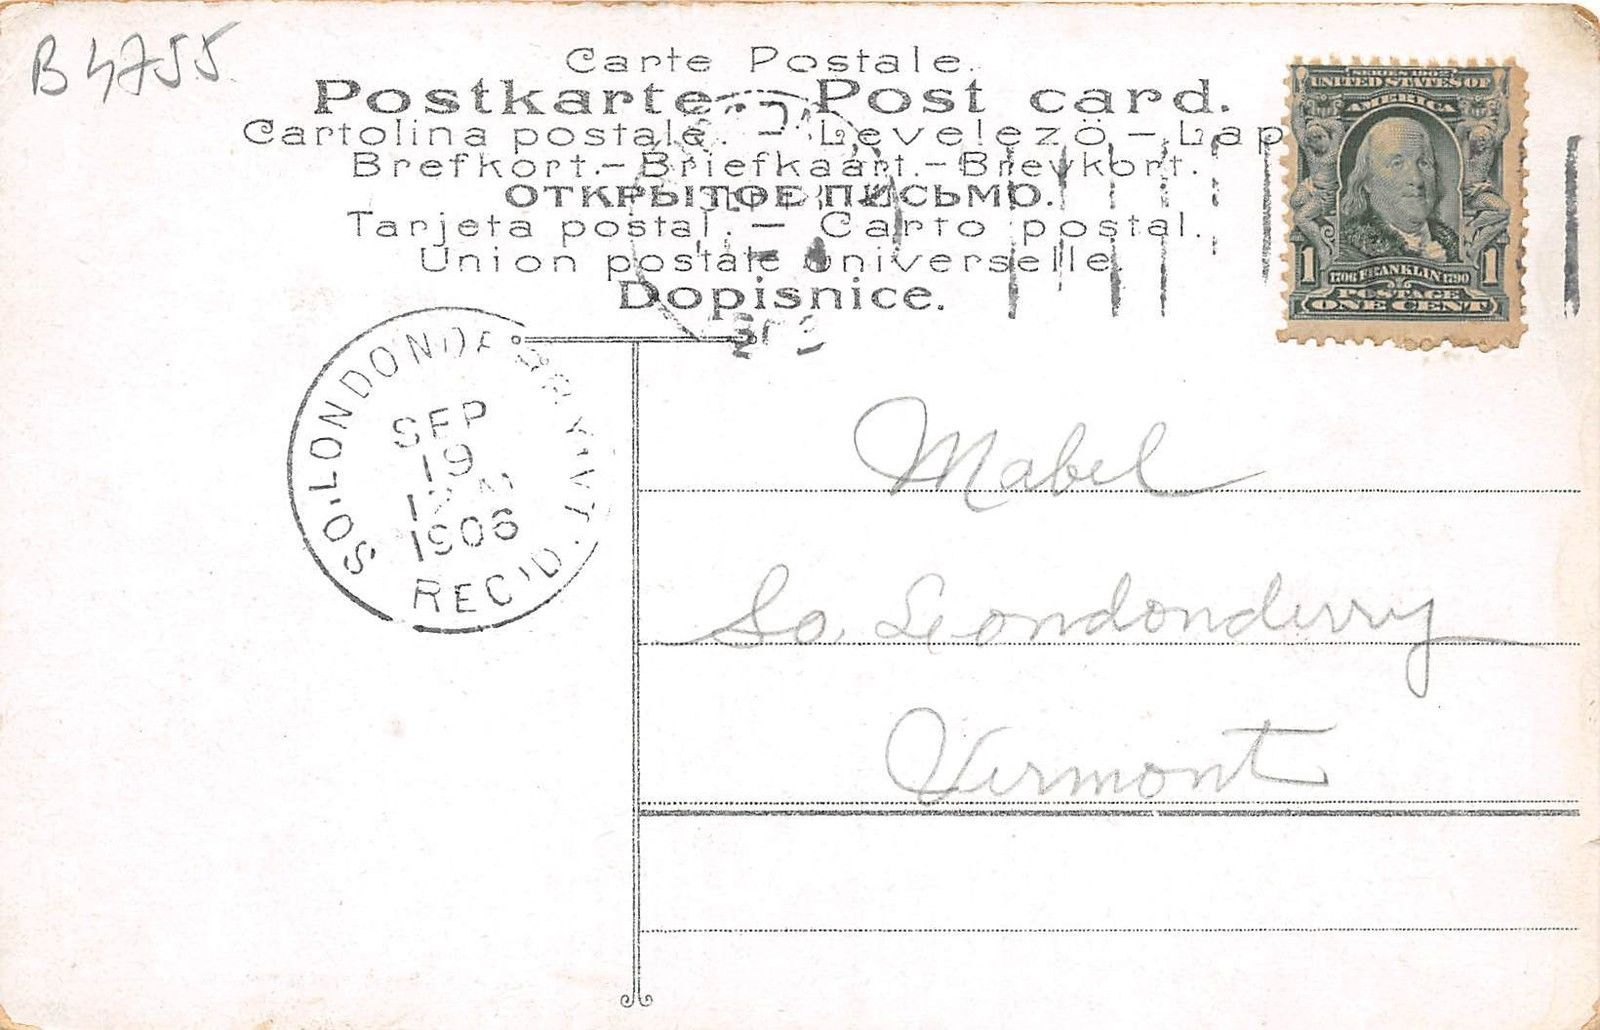 B4755
Carte Postale.
Postkarte - Post card.
Cartolina postale. - Levelezö - Lap
Brefkort. - Briefkaart. - Brevkort.
ОТКРЫТОЕ ПИСЬМО.
Tarjeta postal. - Carto postal.
Union postale universelle.
Dopisnice.
SERIES 1902
UNITED STATES OF
AMERICA
1 1706 FRANKLIN 1790 1
POSTAGE
ONE CENT
SO. LONDONDERRY, VT.
SEP
19
1906
REC'D.
Mabel
So. Londonderry
Vermont